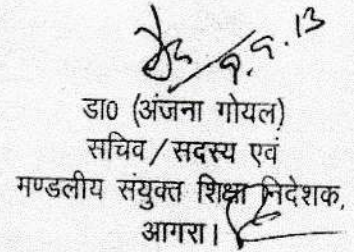 9.9.13
डा0 (अंजना गोयल)
सचिव/सदस्य एवं
मण्डलीय संयुक्त शिक्षा निदेशक,
आगरा।